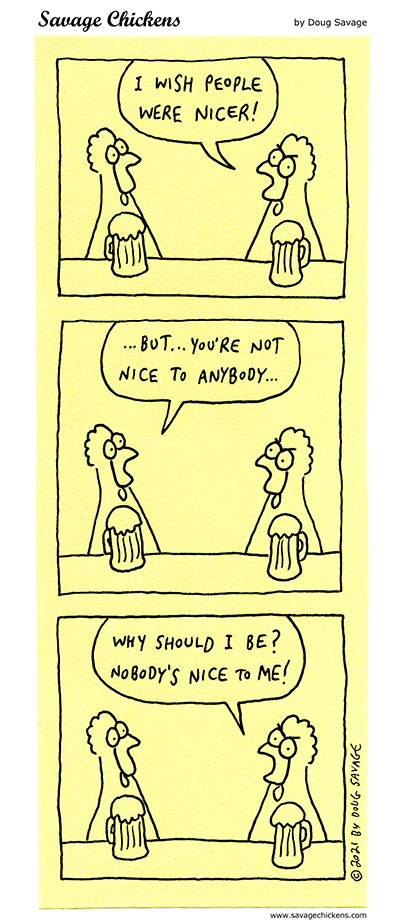 Savage Chickens
by Doug Savage
I WISH PEOPLE
WERE NICER!
...BUT... YOU'RE NOT
NICE TO ANYBODY...
WHY SHOULD I BE?
NOBODY'S NICE TO ME!
© 2021 BY DOUG SAVAGE
www.savagechickens.com